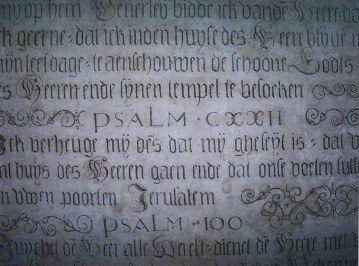 op hem Eenerley bidde ick vanden Heere
geerne: dat ick inden huyse des Heeren blijve
mijn leefdage: te aenschouwen de schoone Gods
Heeren ende synen tempel te besoeken
PSALM · CXXII
Ick verheuge mij des dat mij gheseyt is: dat
huys des Heeren gaen ende dat onse voeten sulle
in uwen poorten Jerusalem
PSALM · 100
de Heer alle Werelt: dienet de Heere met